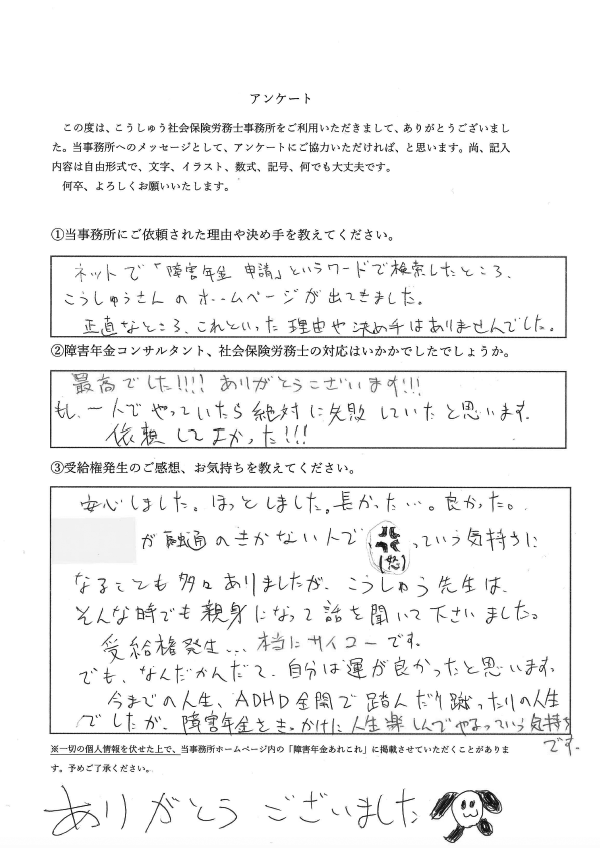 アンケート
この度は、こうしゅう社会保険労務士事務所をご利用いただきまして、ありがとうございまし
た。当事務所へのメッセージとして、アンケートにご協力いただければ、と思います。尚、記入
内容は自由形式で、文字、イラスト、数式、記号、何でも大丈夫です。
何卒、よろしくお願いいたします。
①当事務所にご依頼された理由や決め手を教えてください。
ネットで「障害年金 申請」というワードで検索したところ、
こうしゅうさんのホームページが出てきました。
正直なところ、これといった理由や決め手はありませんでした。
②障害年金コンサルタント、社会保険労務士の対応はいかかでしたでしょうか。
最高でした!!!! ありがとうございます!!!
もし、一人でやっていたら絶対に失敗していたと思います。
依頼してよかった!!!
③受給権発生のご感想、お気持ちを教えてください。
安心しました。ほっとしました。長かった…。良かった。
が融通のきかない人で (怒) っていう気持ちに
なることも多々ありましたが、こうしゅう先生は、
そんな時でも親身になって話を聞いて下さいました。
受給権発生… 本当にサイコーです。
でも、なんだかんだで、自分は運が良かったと思います。
今までの人生、ADHD全開で踏んだり蹴ったりの人生
でしたが、障害年金をきっかけに人生楽しんでやるっていう気持ち
です。
※一切の個人情報を伏せた上で、当事務所ホームページ内の「障害年金あれこれ」に掲載させていただくことがありま
す。予めご了承ください。
ありがとうございました